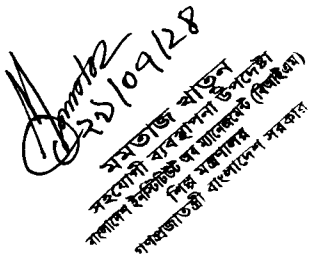 ২১/০৭/২৪
মমতাজ খাতুন
সহযোগী ব্যবস্থাপনা উপদেষ্টা
বাংলাদেশ ইনস্টিটিউট অব ম্যানেজমেন্ট (বিআইএম)
শিল্প মন্ত্রণালয়
গণপ্রজাতন্ত্রী বাংলাদেশ সরকার